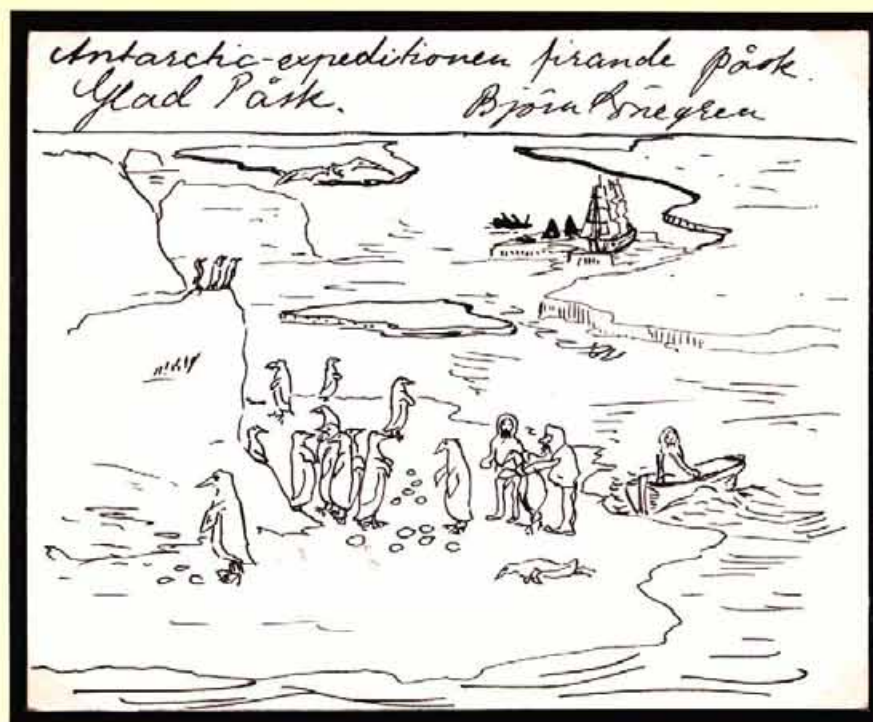 Antarctic-expeditionen firande påsk.
Glad Påsk. Björn